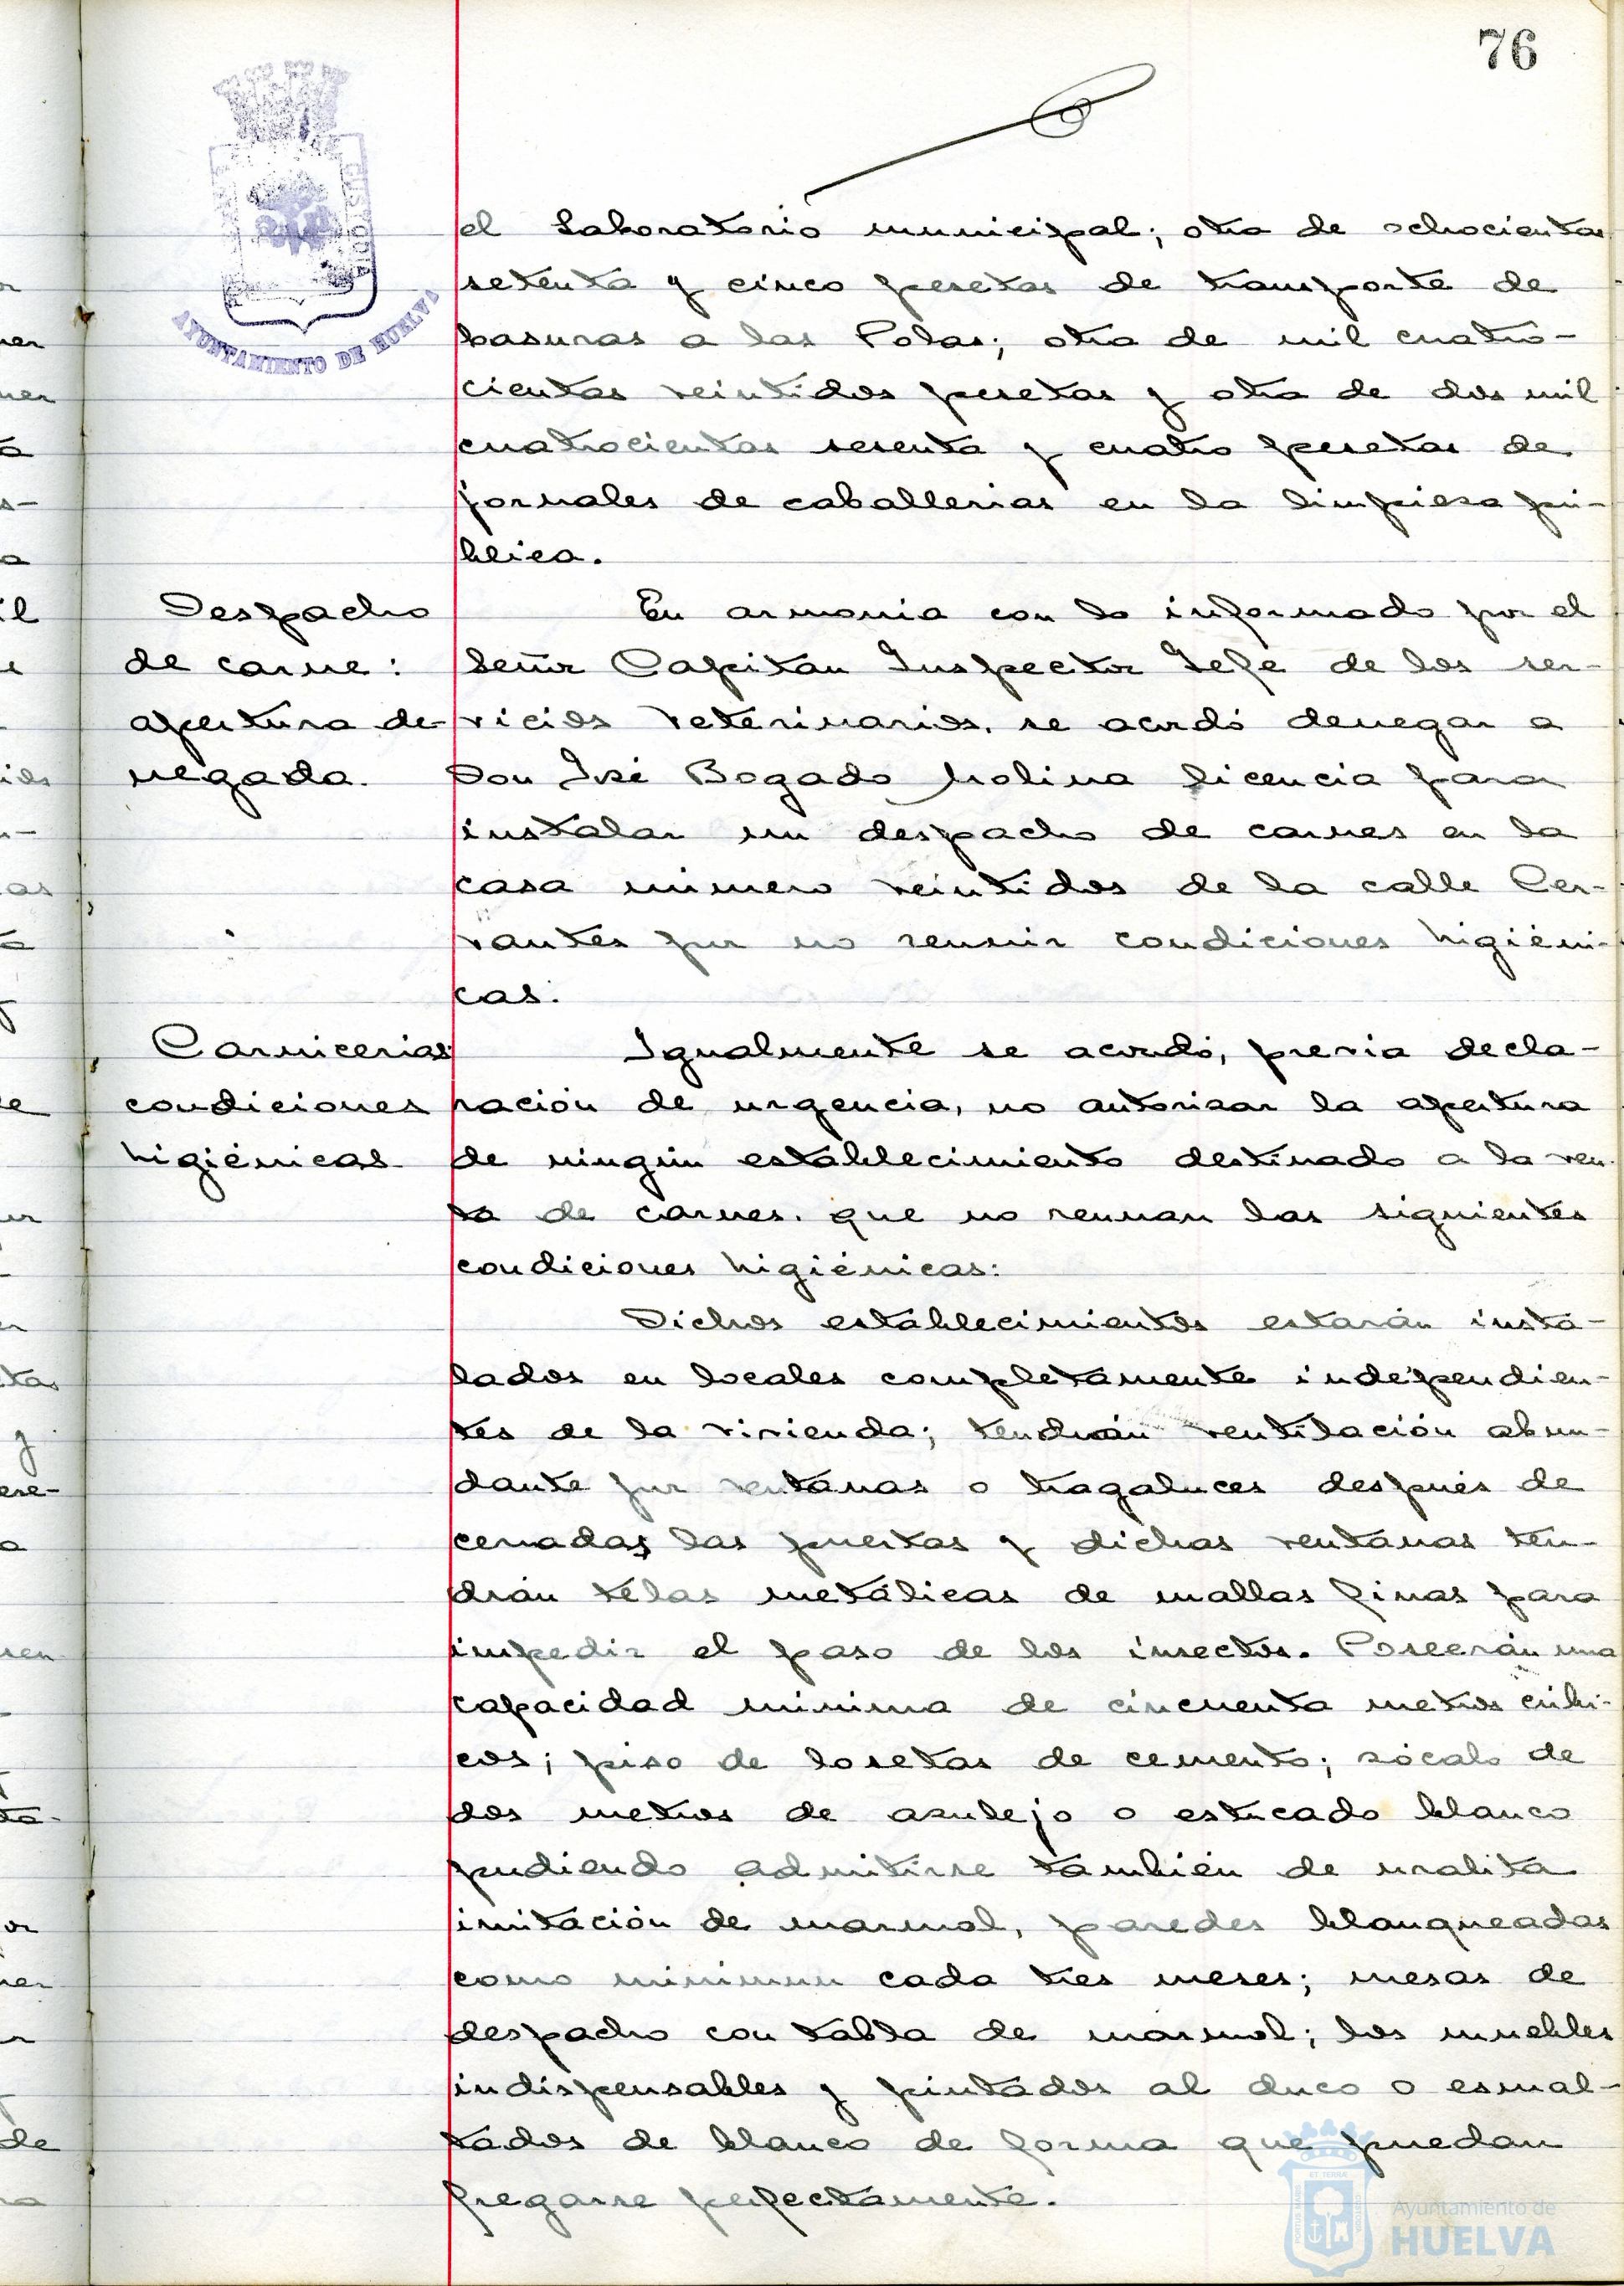 76
CUSTODIA
AYUNTAMIENTO DE HUELVA
el Laboratorio municipal; otra de ochocientas
setenta y cinco pesetas de transporte de
basuras a las Polas; otra de mil cuatro-
cientas veintidos pesetas y otra de dos mil
cuatrocientas sesenta y cuatro pesetas de
jornales de caballerias en la limpieza pú-
blica.
Despacho
de carne:
apertura de-
negada.
En armonia con lo informado por el
Señor Capitan Inspector Jefe de los ser-
vicios veterinarios, se acordó denegar a
Don José Bogado Molina licencia para
instalar un despacho de carnes en la
casa número veintidos de la calle Cer-
vantes por no reunir condiciones higiéni-
cas.
Carnicerias:
condiciones
higiénicas
Igualmente se acordó, previa decla-
ración de urgencia, no autorizar la apertura
de ningún establecimiento destinado a la ven-
ta de carnes, que no reunan las siguientes
condiciones higiénicas:
Dichos establecimientos estarán insta-
lados en locales completamente independien-
tes de la vivienda; tendrán ventilación abun-
dante por ventanas o tragaluces después de
cerradas las puertas y dichas ventanas ten-
drán telas metálicas de mallas finas para
impedir el paso de los insectos. Poseerán una
capacidad minima de cincuenta metros cúbi-
cos; piso de losetas de cemento; zócalo de
dos metros de azulejo o estucado blanco
pudiendo admitirse también de uralita
imitación de marmol, paredes blanqueadas
como minimun cada tres meses; mesas de
despacho con tabla de marmol; los muebles
indispensables y pintados al duco o esmal-
tados de blanco de forma que puedan
fregarse perfectamente.
Ayuntamiento de
HUELVA